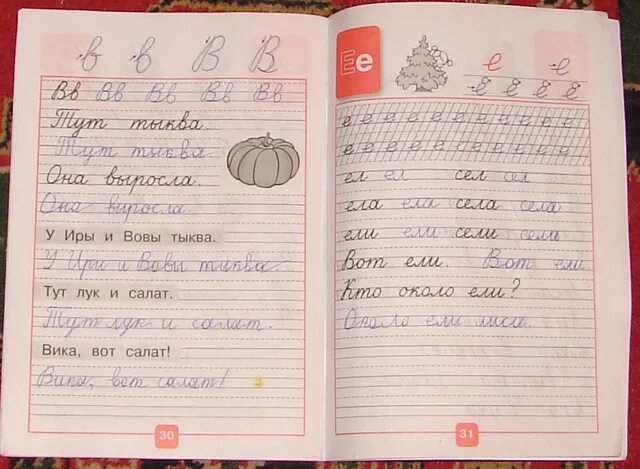 в в В В
Вв Вв Вв Вв Вв
Тут тыква.
Тут тыква.
Она выросла.
Она выросла.
У Иры и Вовы тыква.
У Иры и Вовы тыква.
Тут лук и салат.
Тут лук и салат.
Вика, вот салат!
Вика, вот салат!
30
Ее
е е
ё ё ё ё
е е е е е е е е е е е е
е е е е е е е е е е е е
ел ел сел сел
ела ела села села
ели ели сели сели
Вот ели. Вот ели
Кто около ели?
Около ели лиса.
31